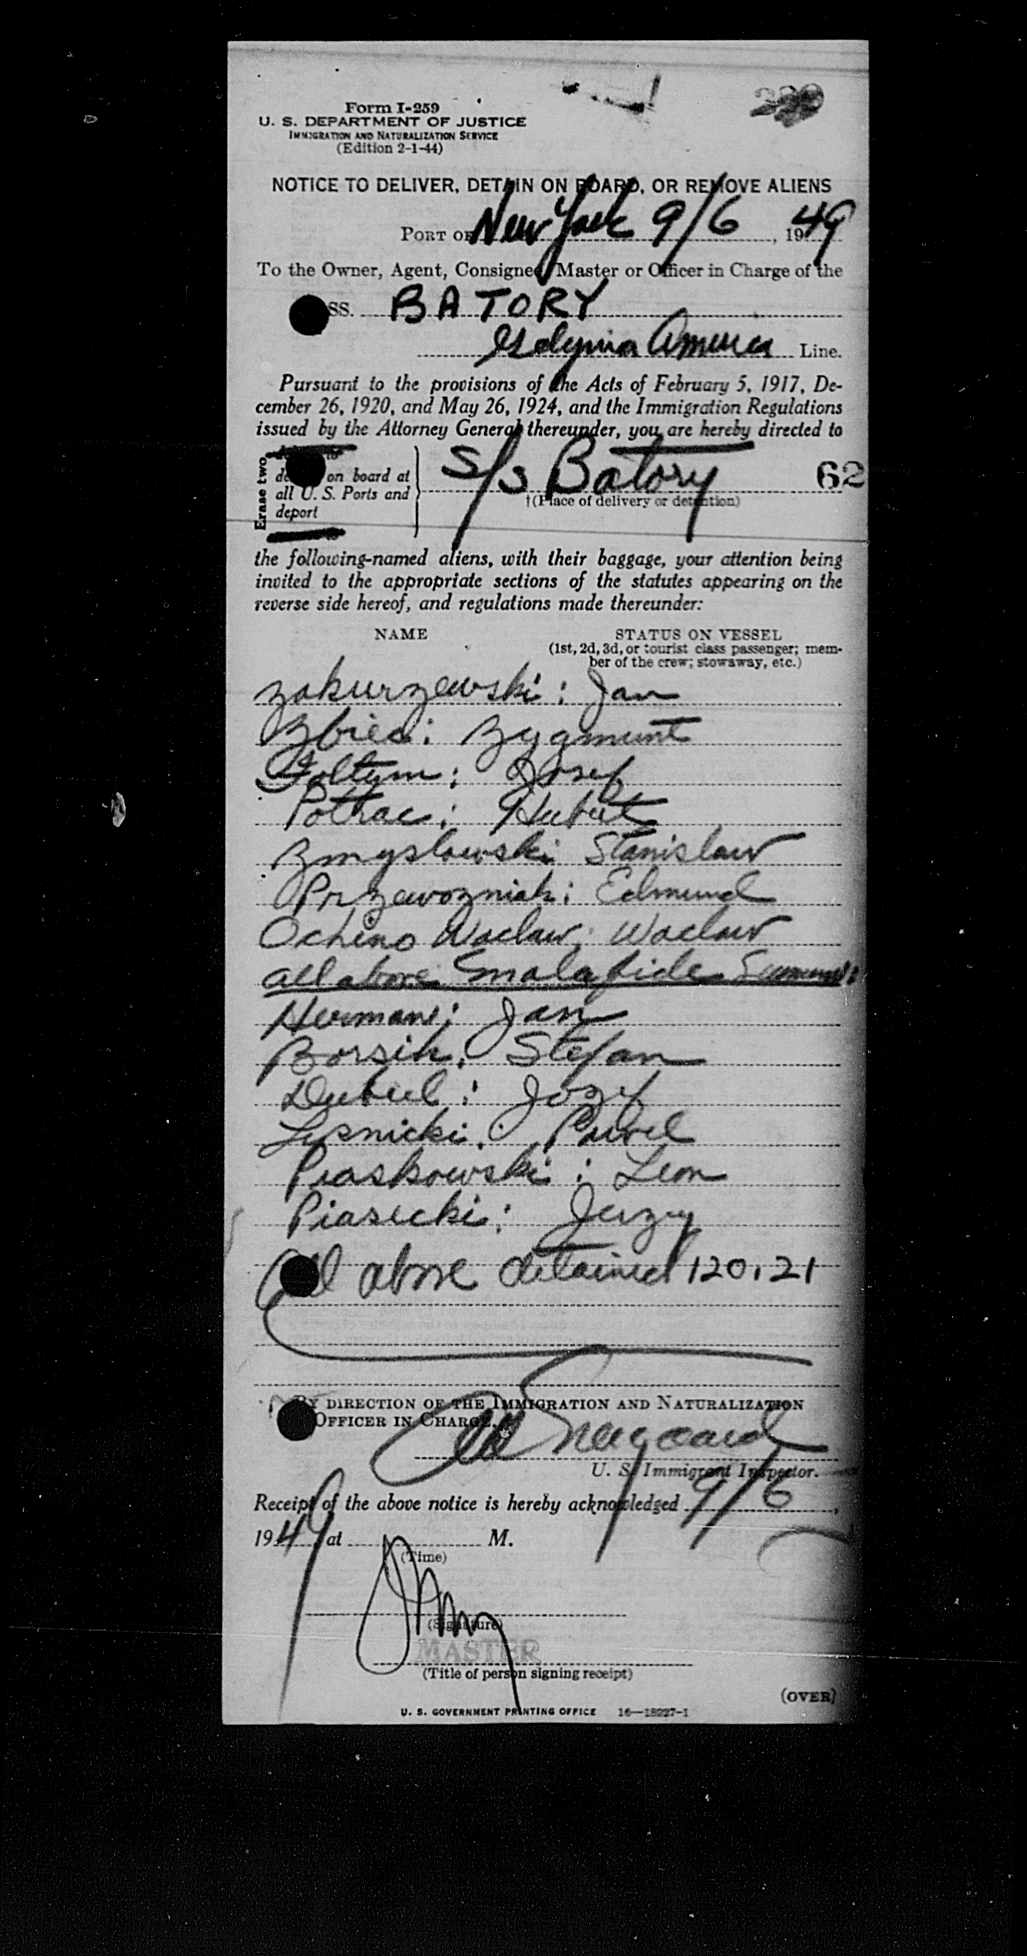 Form I-259
U. S. DEPARTMENT OF JUSTICE
IMMIGRATION AND NATURALIZATION SERVICE
(Edition 2-1-44)
NOTICE TO DELIVER, DETAIN ON BOARD, OR REMOVE ALIENS
PORT OF New York 9/6, 1949
To the Owner, Agent, Consignee, Master or Officer in Charge of the
SS. BATORY
Gdynia America Line.
Pursuant to the provisions of the Acts of February 5, 1917, De-
cember 26, 1920, and May 26, 1924, and the Immigration Regulations
issued by the Attorney General thereunder, you are hereby directed to
Erase two
on board at
all U. S. Ports and
deport
s/s Batory 62
†(Place of delivery or detention)
the following-named aliens, with their baggage, your attention being
invited to the appropriate sections of the statutes appearing on the
reverse side hereof, and regulations made thereunder:
NAME STATUS ON VESSEL
(1st, 2d, 3d, or tourist class passenger; mem-
ber of the crew; stowaway, etc.)
Zakurzewski: Jan
Zygmunt
Foltym: Josef
Pothac: Hubert
Zmyslowski Stanislaw
Przewozniak: Edmund
Ochino Waclaw: Waclaw
all above malafide
Hermans: Jan
Borsik: Stefan
Dubiel: Jozef
Lesnicki: Pawel
Piaskowski: Leon
Piasecki: Jerzy
All above detained 120.21
BY DIRECTION OF THE IMMIGRATION AND NATURALIZATION
OFFICER IN CHARGE.
U. S. Immigrant Inspector.
Receipt of the above notice is hereby acknowledged 9/6,
1949 at M.
(Time)
(Signature)
MASTER
(Title of person signing receipt)
(OVER)
U. S. GOVERNMENT PRINTING OFFICE 16—18227-1